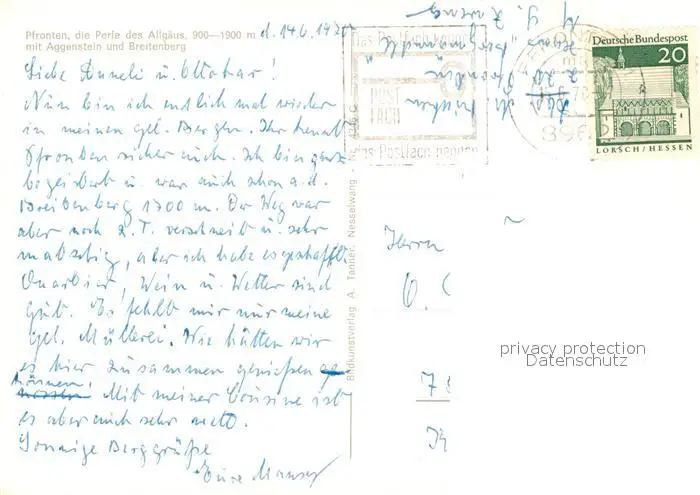 Pfronten, die Perle des Allgäus, 900—1900 m
mit Aggenstein und Breitenberg
d. 14.6.1970
Liebe Anneli u. Ottokar!
Nun bin ich endlich mal wieder
in meinen gel. Bergen. Ihr kennt
Pfronten sicher auch. Ich bin ganz
begeistert u. war auch schon a. d.
Breitenberg 1700 m. Der Weg war
aber noch z.T. verschneit u. sehr
mühselig, aber ich habe es geschafft.
Quartier, Wein u. Wetter sind
gut. Es fehlt mir nur meine
gel. Müllerei. Wie hätten wir
es hier zusammen genießen
können! Mit meiner Cousine ist
es aber auch sehr nett.
Sonnige Berggrüße
Eure
Bildkunstverlag A. Tanner, Nesselwang
das Postfach kennen
POST
FACH
das Postfach nennen
Deutsche Bundespost
20
LORSCH/HESSEN
Herrn
O.
privacy protection
Datenschutz